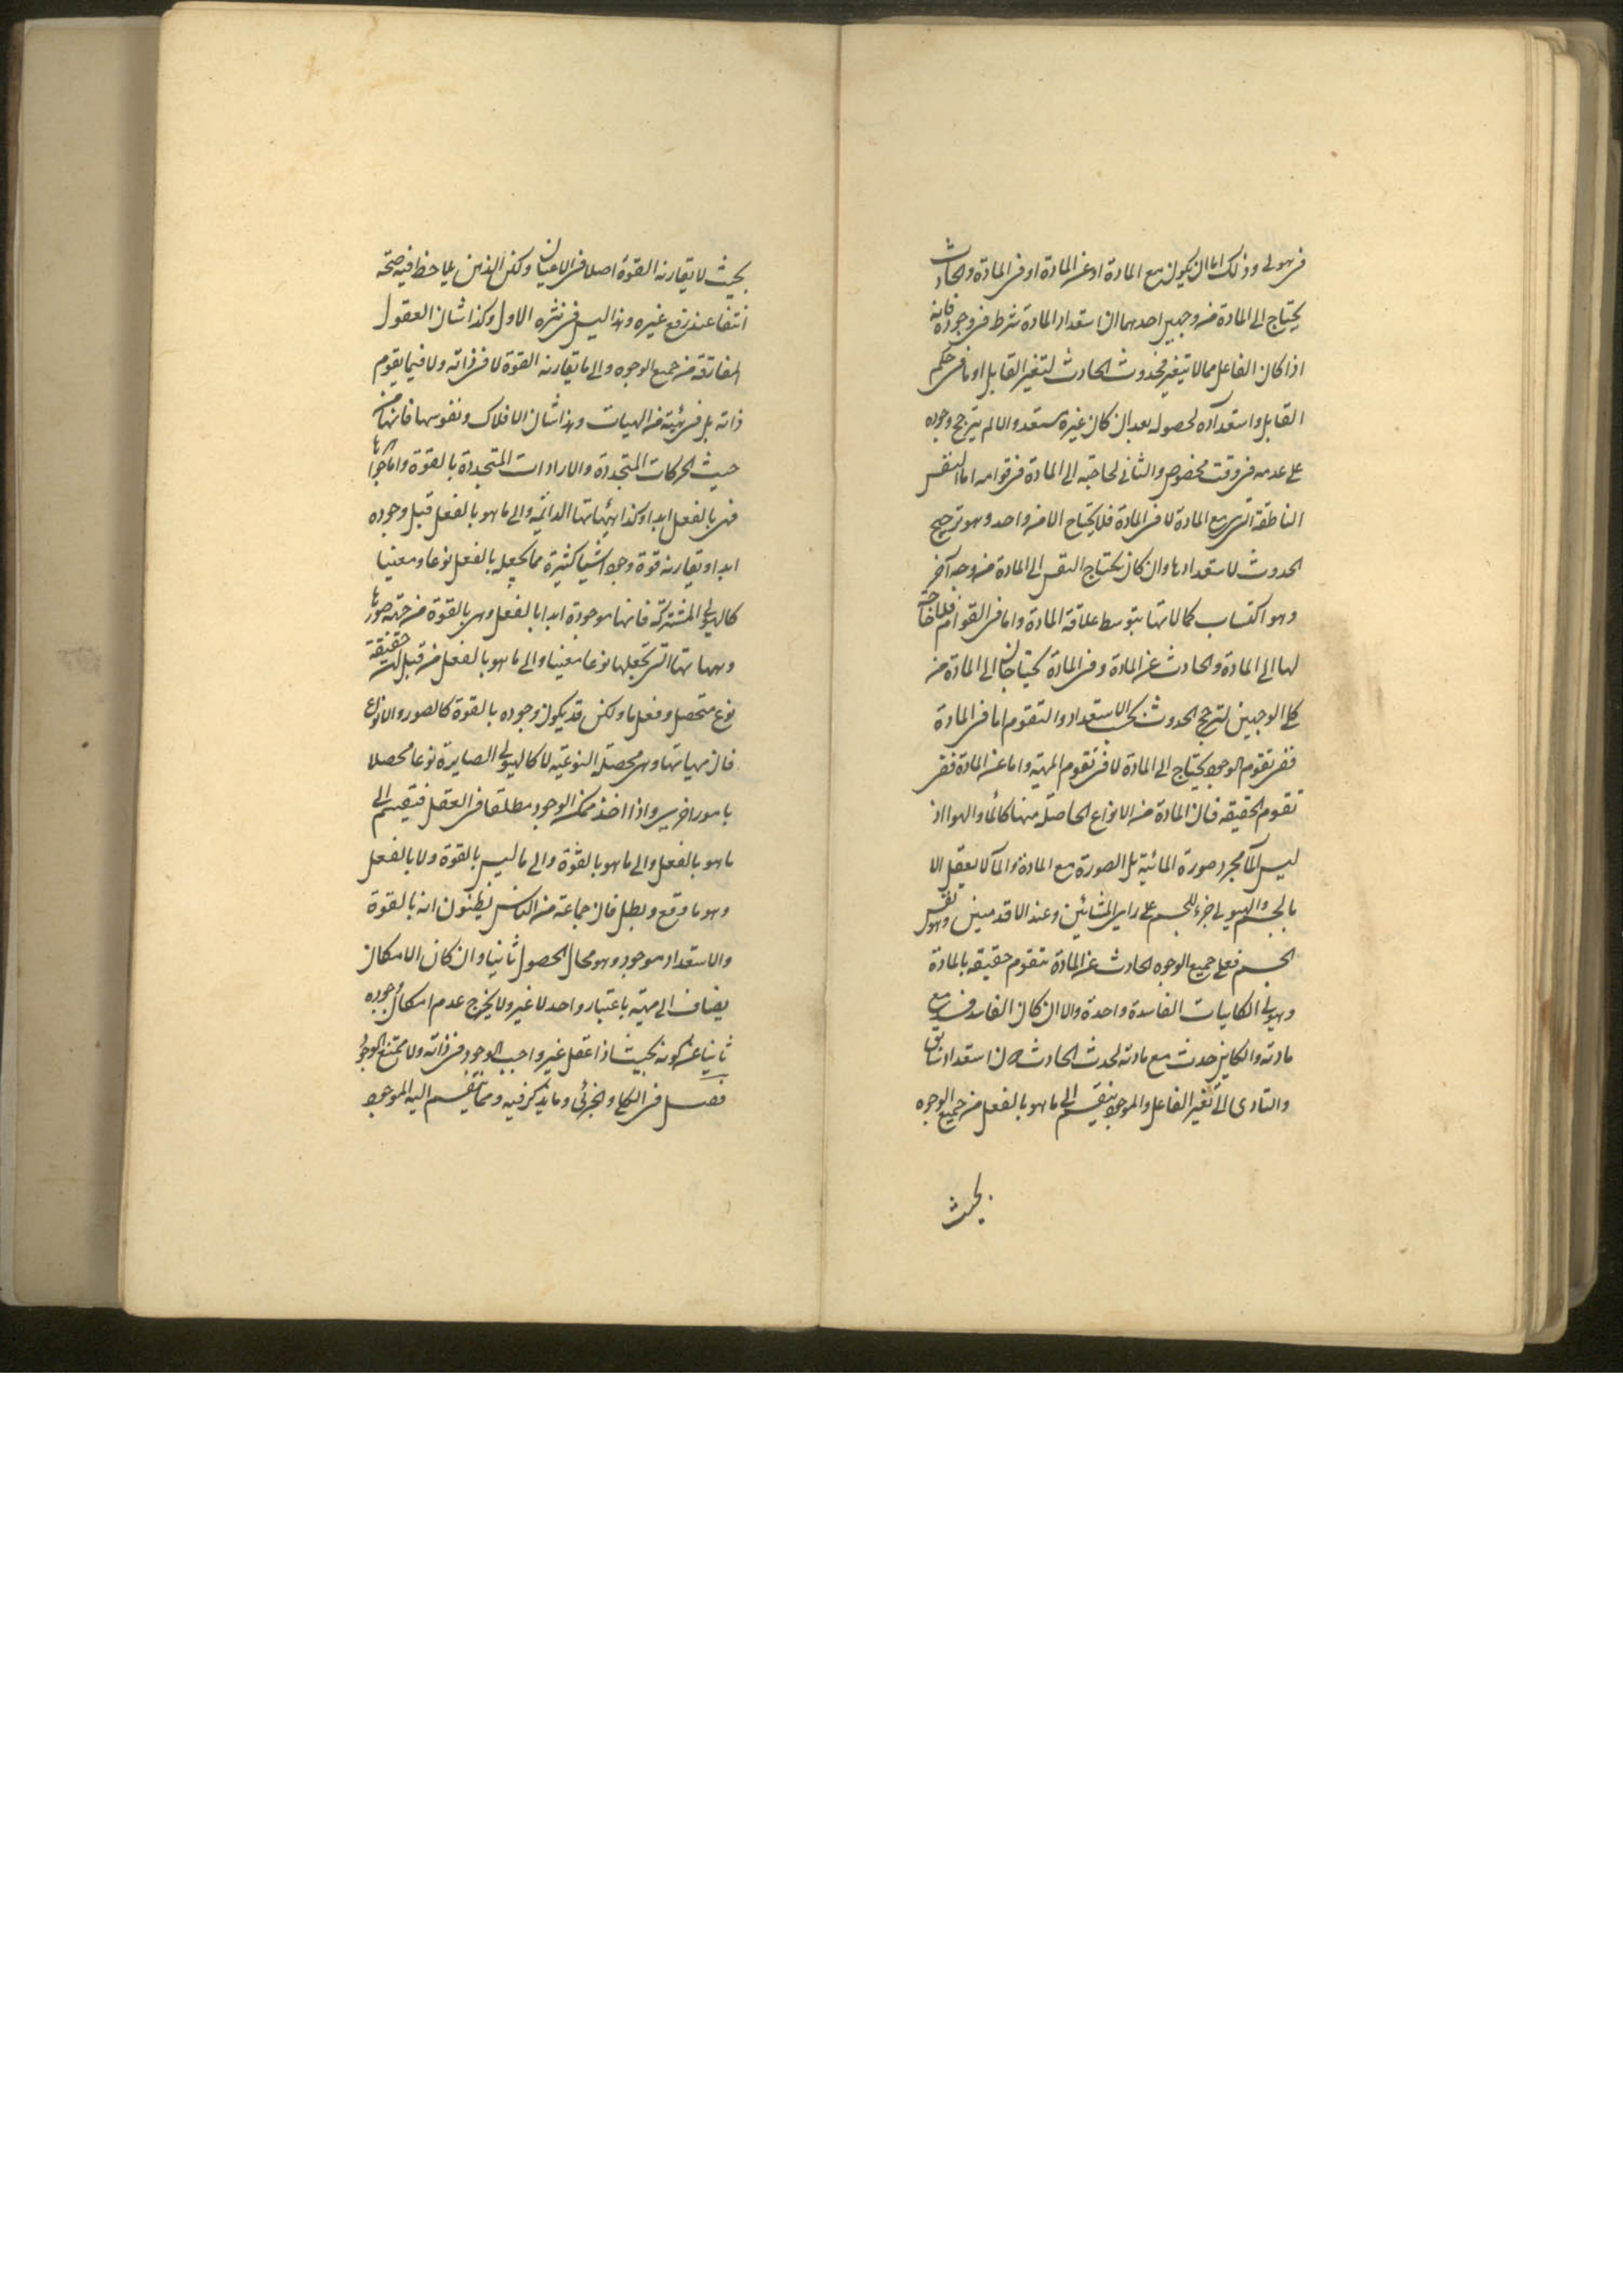 فى هيولى وذلك اما ان يكون مع المادة او عن المادة او فى المادة والحادث
يحتاج الى المادة من وجهين احدهما ان استعداد المادة شرط فى وجوده فانه
اذا كان الفاعل مما لا يتغير فحدوث الحادث لتغير القابل او ما فى حكم
القابل واستعداده لحصوله بعد ان كان غيره مستعد والا لم يترجح وجوده
على عدمه فى وقت مخصوص والثانى لحاجته الى المادة فى قوامه اما النفس
الناطقة التى مع المادة لا فى المادة فلا يحتاج الا من واحد وهو ترجيح
الحدوث لاستعدادها وان كان يحتاج النفس الى المادة من وجه آخر
وهو اكتساب كمالاتها بتوسط علاقة المادة واما فى القوام فلا حاجة
لها الى المادة والحادث عن المادة وفى المادة يحتاجان الى المادة من
كلى الوجهين لترجح الحدوث بحسب الاستعداد والتقوم اما فى المادة
ففى تقوم الوجود يحتاج الى المادة لا فى تقوم المهية واما عن المادة ففى
تقوم الحقيقه فان المادة من الانواع الحاصلة منها كالما والهوا اذ
ليس الما مجرد صورة المائية بل الصورة مع المادة والما لا يعقل الا
بالجسم والهيولى جزء للجسم على راى المشائين وعند الاقدمين وهو نفس
الجسم فعلى جميع الوجوه الحادث عن المادة تتقوم حقيقه بالمادة
وهيولى الكاينات الفاسدة واحدة والا ان كان الفاسد فسد مع
مادته والكاين حدث مع مادته لحدث الحادث لا استعداد سابق
والتادى الى تغير الفاعل والموجود ينقسم الى ما هو بالفعل من جميع الوجوه
بحيث
بحيث لا يقارنه القوة اصلا فى الاعيان ولكن الذهن يلاحظ فيه صحة
انتفا عند رفع غيره وهذا ليس فى نثره الاول وكذا شان العقول
المفارقة من جميع الوجوه والى ما يقارنه القوة لا فى ذاته ولا فيما يقوم
ذاته بل فى هيئة من الهيات وهذا شان الافلاك ونفوسها فانها من
حيث الحركات المتجددة والارادات المتجددة بالقوة واما اجرامها
فهى بالفعل ابدا وكذا هيئاتها الدائمه والى ما هو بالفعل قبل وجوده
ابدا ويقارنه قوة وجود اشيا كثيرة مما يجعله بالفعل نوعا ومعينا
كالهيولى المشتركة فانها موجودة ابدا بالفعل وهى بالقوة من جهة صورها
وهياتها التى تجعلها نوعا معينا والى ما هو بالفعل من قبل حقيقة
نوع متحصل وفعل ما ولكن قد يكون وجوده بالقوة كالصور والانواع
فان مهياتها وهى محصلة النوعيه لا كالهيولى الصايرة نوعا محصلا
بامور اخرى واذا اخذ ممكن الوجود مطلقا فى العقل فينقسم الى
ما هو بالفعل والى ما هو بالقوة والى ما ليس بالقوة ولا بالفعل
وهو ما وقع وبطل فان جماعة من الناس يظنون انه بالقوة
والاستعداد موجود وهو محال الحصول ثانيا وان كان الامكان
يضاف الى مهيته باعتبار واحد لا غير ولا يخرج عدم امكان وجوده
ثانيا عن كونه بحيث اذا عقل غير واجب الوجود فى ذاته ولا ممتنع الوجود
فصل فى الكلى والجزئى وما يذكر فيه ومما ينقسم اليه الموجود